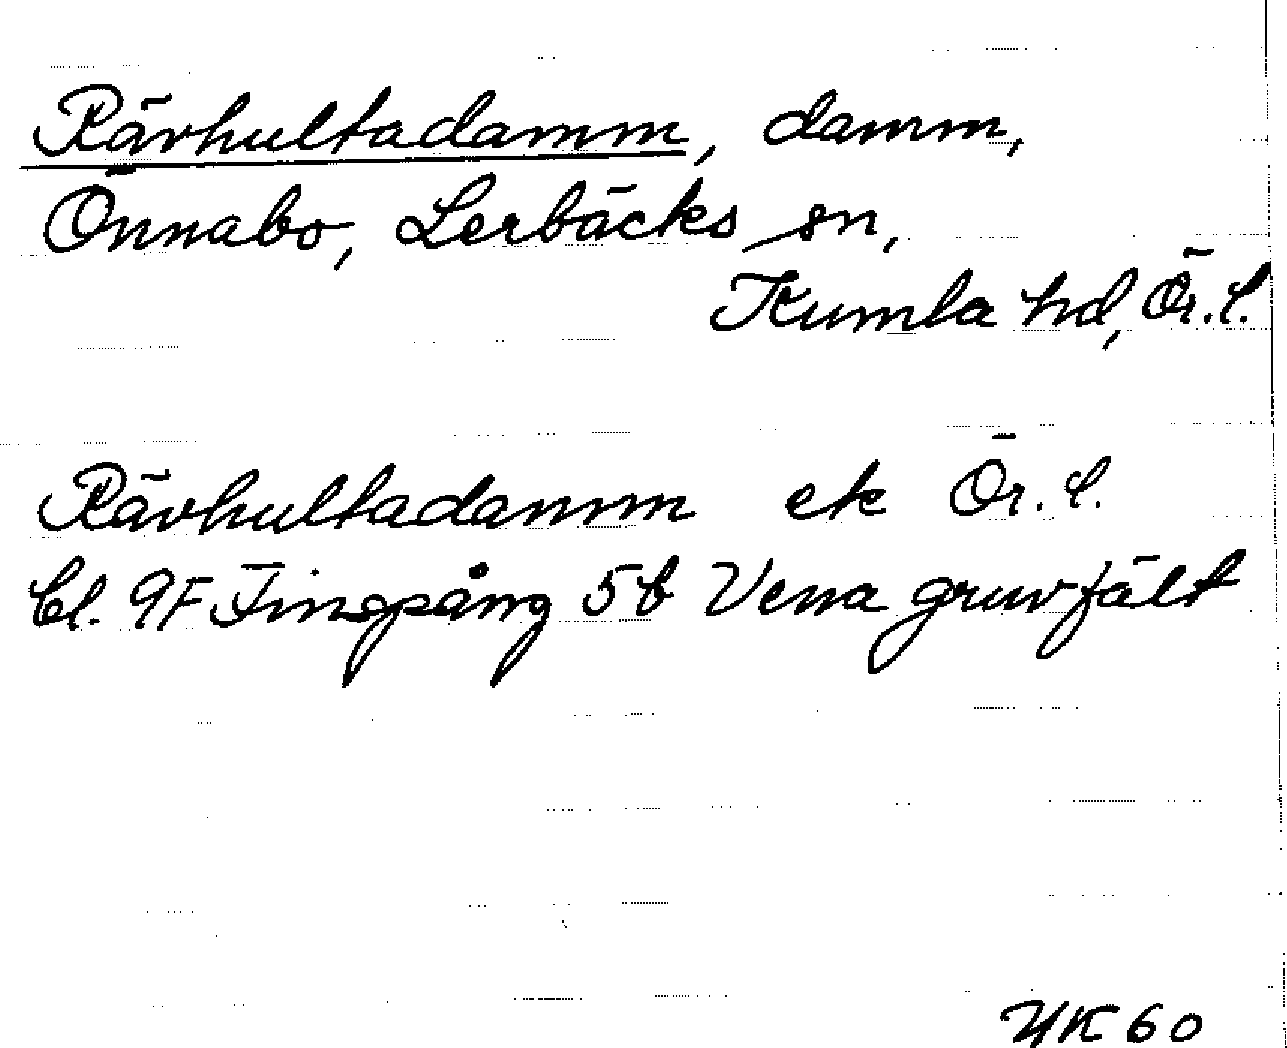 Rävhultadamm, damm,
Önnabo, Lerbäcks sn,
Kumla hd, Ör. l.
Rävhultadamm ek Ör. l.
bl. 9F Finspång 5b Vena gruvfält
YK 60